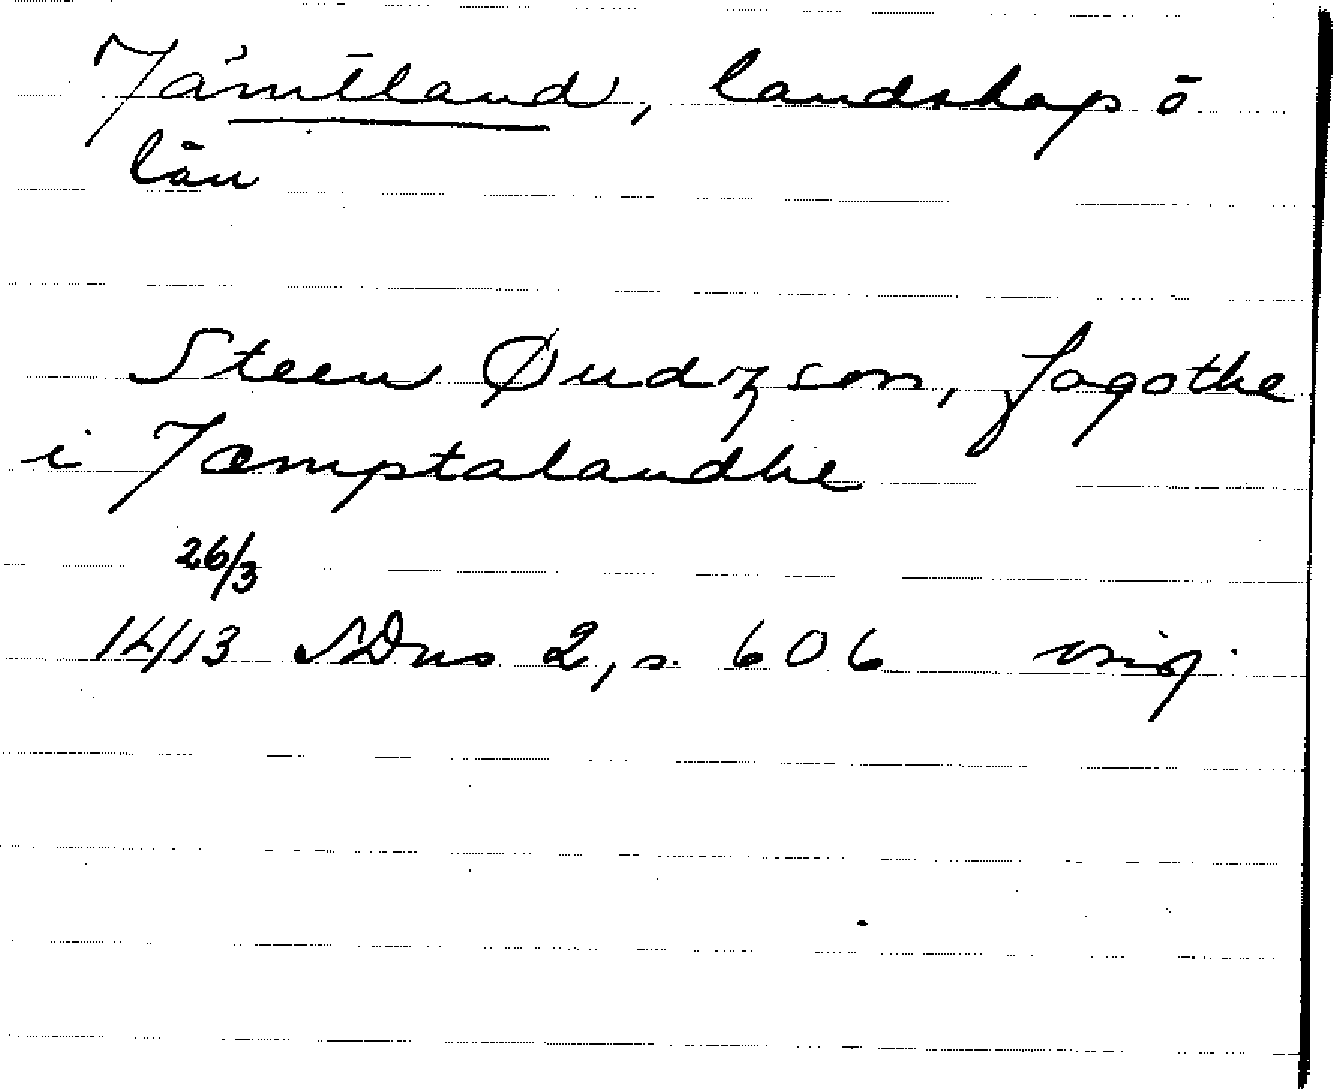 Jämtland, landskap o
län
Steen Øudzson, fogothe
i Jæmptalandhe
26/3
1413 SDns 2, s. 606 orig.